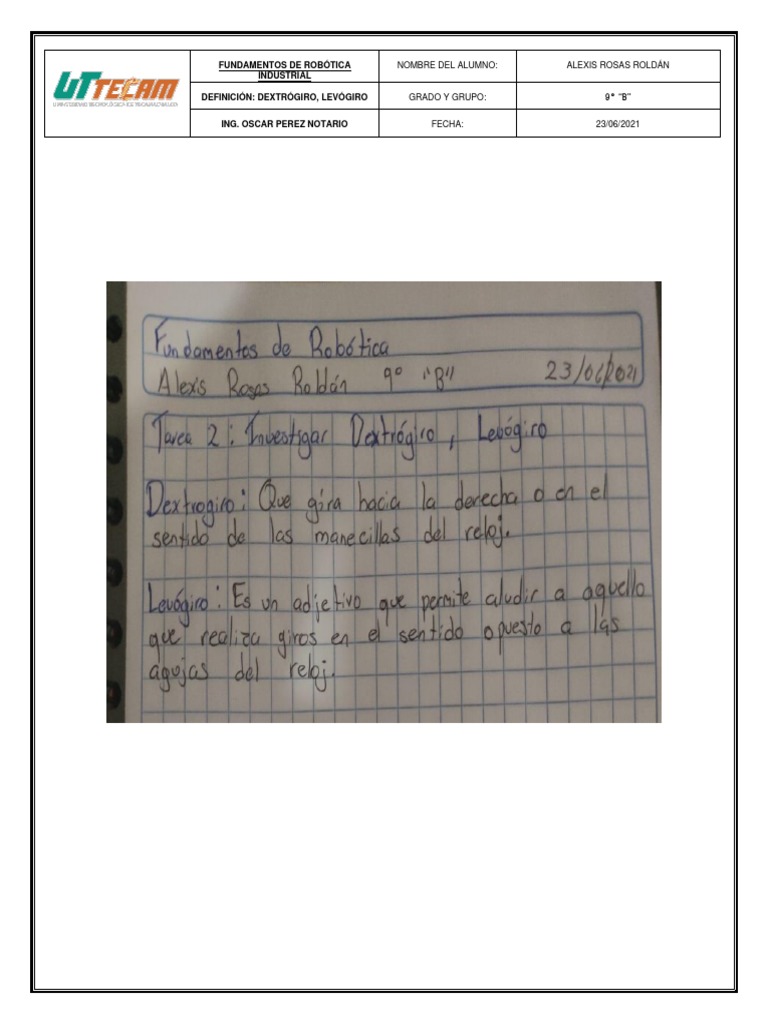 UTTECAM
UNIVERSIDAD TECNOLÓGICA DE TECAMACHALCO
FUNDAMENTOS DE ROBÓTICA INDUSTRIAL
NOMBRE DEL ALUMNO:
ALEXIS ROSAS ROLDÁN
DEFINICIÓN: DEXTRÓGIRO, LEVÓGIRO
GRADO Y GRUPO:
9° “B”
ING. OSCAR PEREZ NOTARIO
FECHA:
23/06/2021
Fundamentos de Robótica
Alexis Rosas Roldán 9° "B" 23/06/2021
Tarea 2: Investigar Dextrógiro, Levógiro
Dextrogiro: Que gira hacia la derecha o en el
sentido de las manecillas del reloj.
Levógiro: Es un adjetivo que permite aludir a aquello
que realiza giros en el sentido opuesto a las
agujas del reloj.